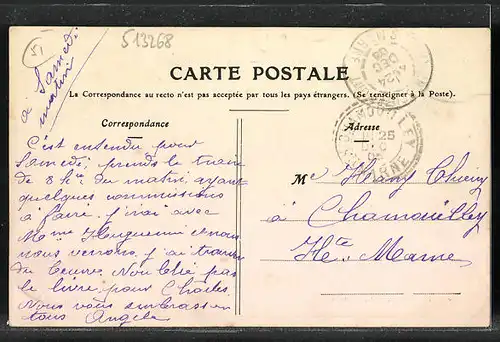 51
513268
à Samedi
matin
CARTE POSTALE
La Correspondance au recto n'est pas acceptée par tous les pays étrangers. (Se renseigner à la Poste).
Correspondance
Adresse
C'est entendu pour
Samedi prends le train
de 8 h du matin ayant
quelques commissions
à faire. J'irai avec
Mme et nous
nous verrons, j'ai trouvé
du beurre. N'oublie pas
le livre pour Charles
Nous vous embrassons
tous Angèle
Me
à Chamouilley
Hte Marne
CHAMOUILLEY
25
DEC
MARNE
24
DEC
08